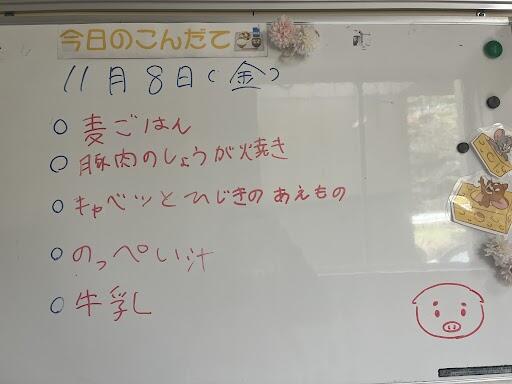 今日のこんだて
11月8日(金)
○ 麦ごはん
○ 豚肉のしょうが焼き
○ キャベツとひじきのあえもの
○ のっぺい汁
○ 牛乳